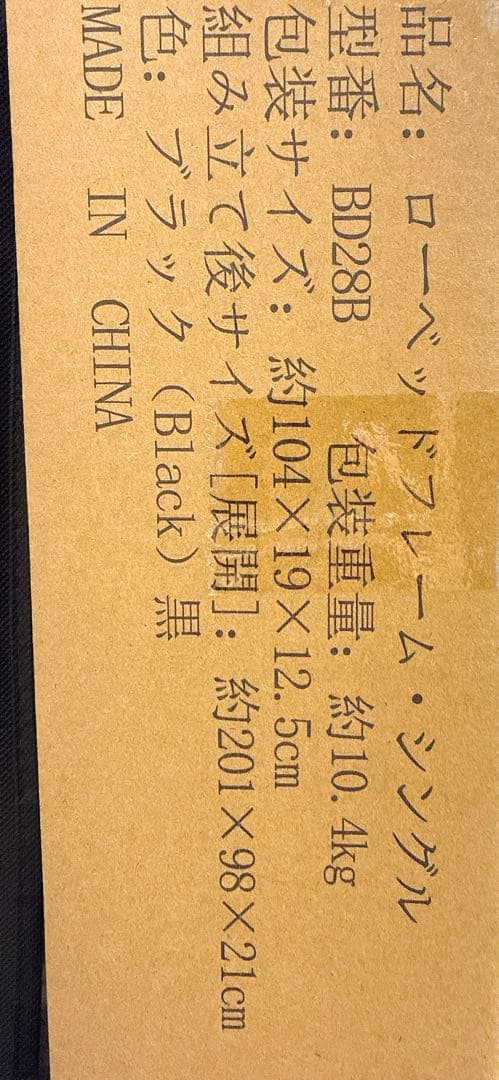 品名: ローベッドフレーム・シングル
型番: BD28B 包装重量: 約10.4kg
包装サイズ: 約104×19×12.5cm
組み立て後サイズ[展開]: 約201×98×21cm
色: ブラック (Black) 黒
MADE IN CHINA